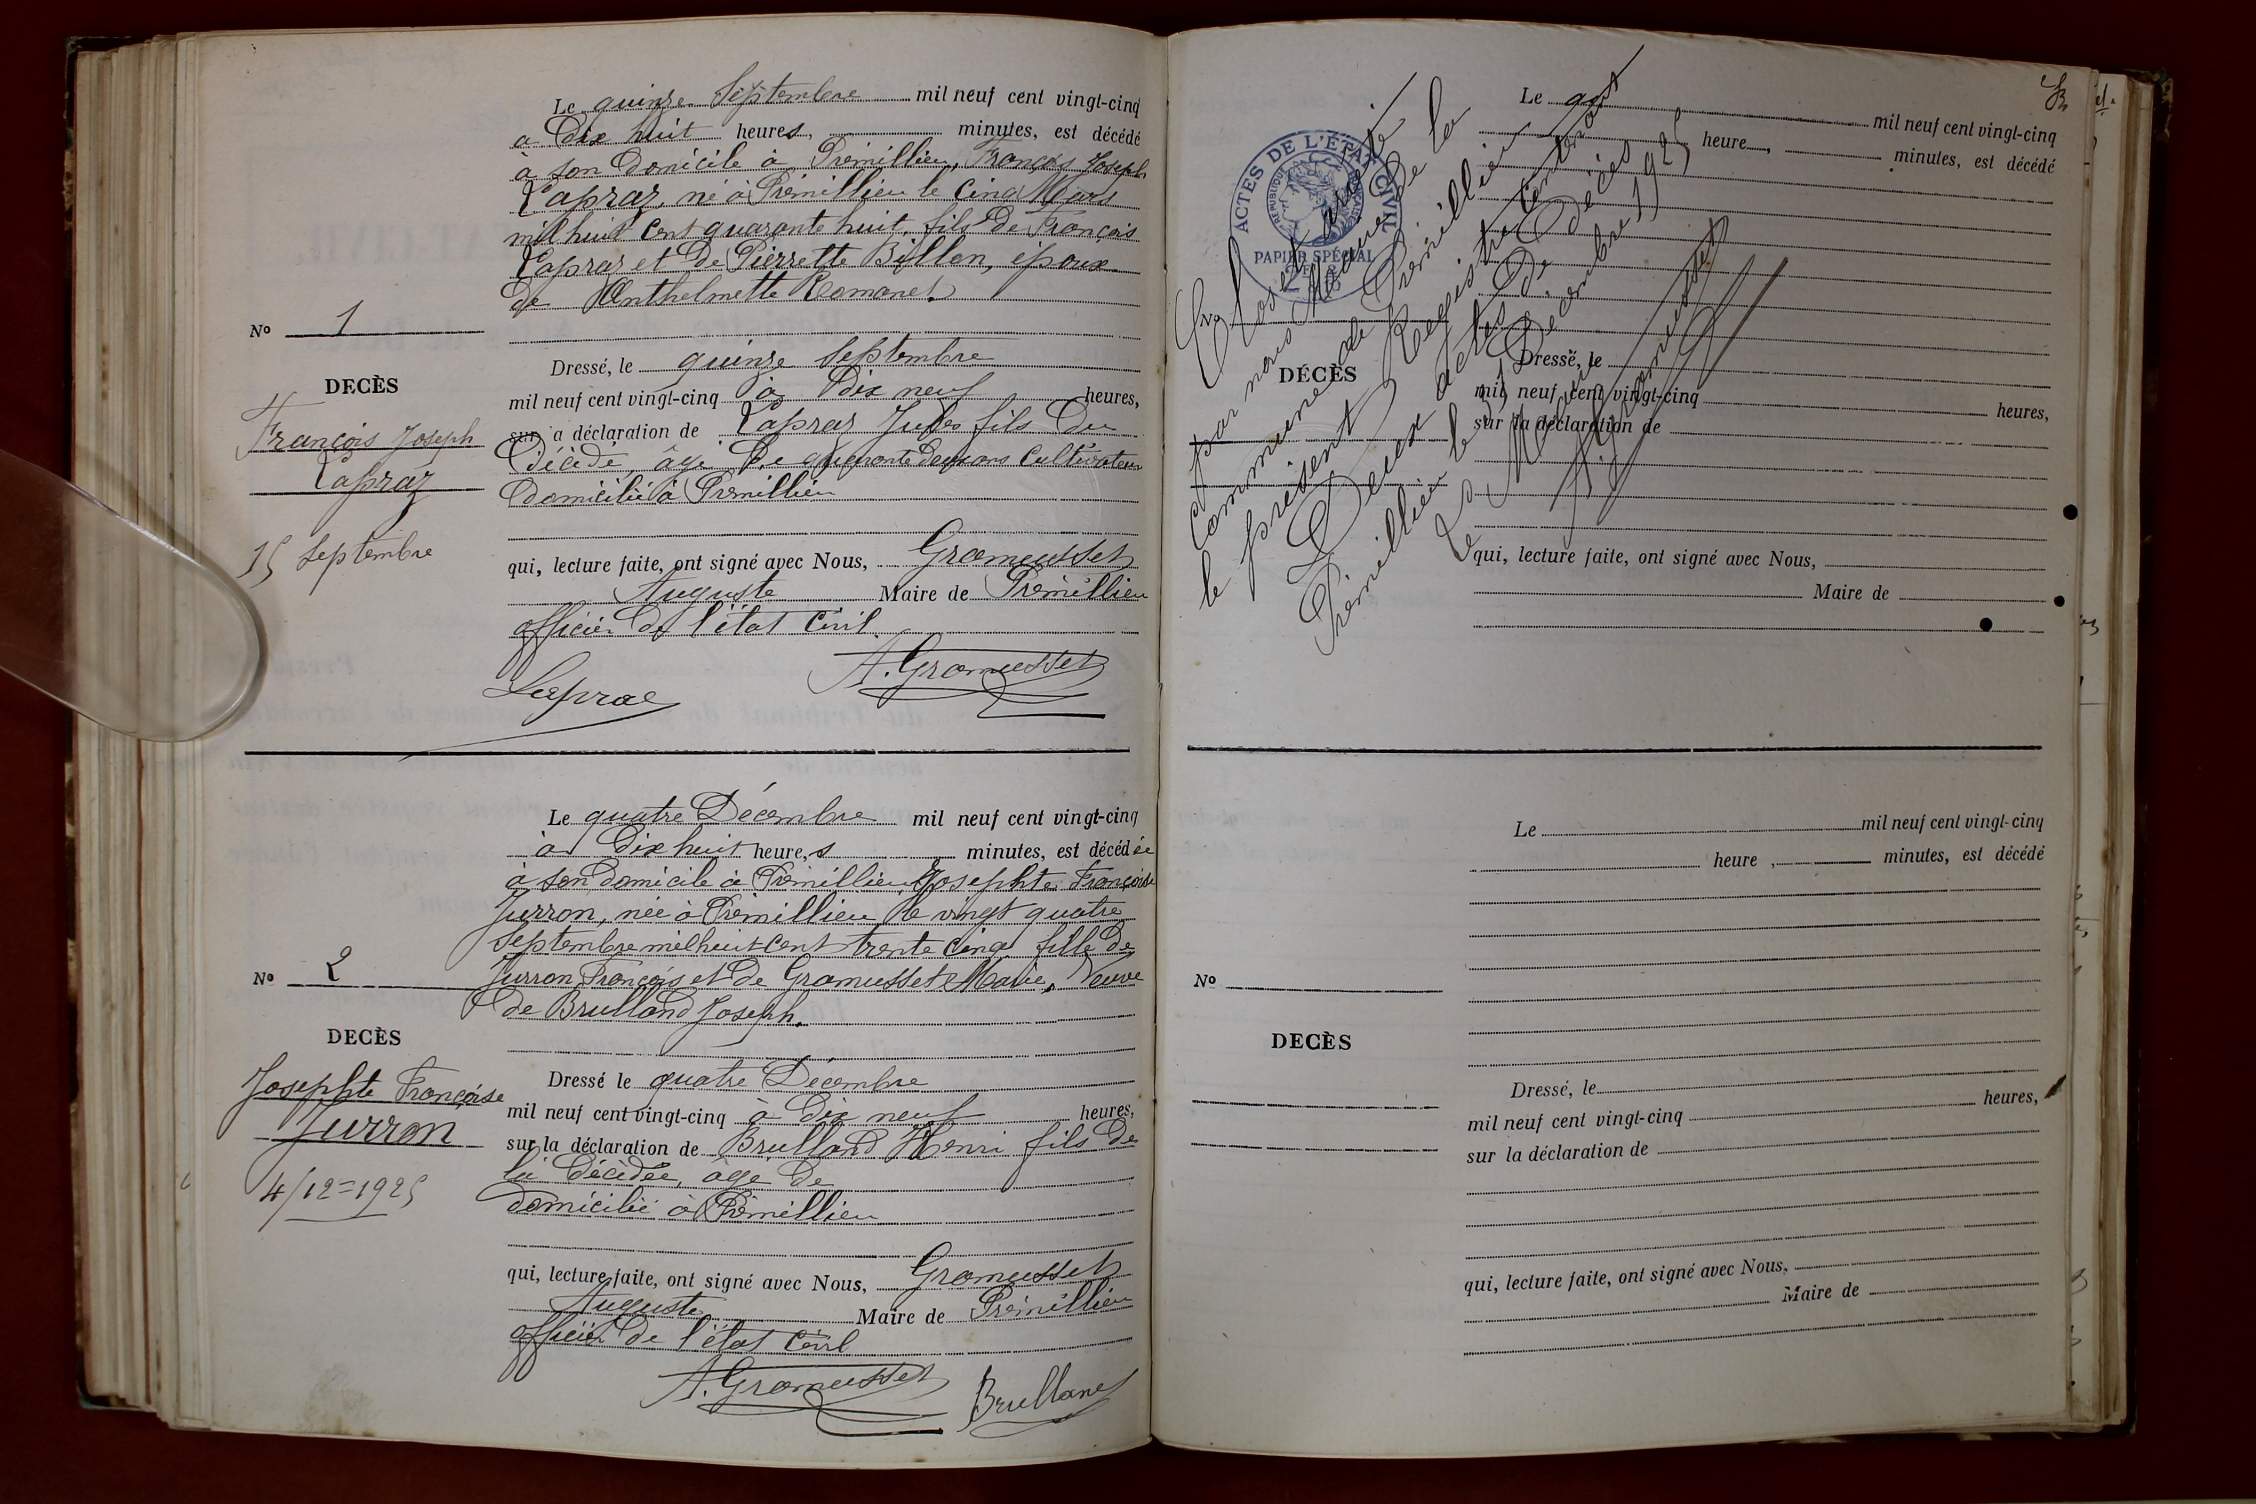 Le quinze Septembre mil neuf cent vingt-cinq
a Dix huit heures, minutes, est décédé
à son Domicile à Prémillieu, François Joseph
Lapraz, né à Prémillieu le Cinq Mars
mil huit Cent quarante huit, fils De François
Lapraz et De Pierrette Billon, époux
De Anthelmette Romanet.
No 1
DECÈS
François Joseph
Lapraz
15 Septembre
Dressé, le quinze Septembre
mil neuf cent vingt-cinq à Dix neuf heures,
sur a déclaration de Lapraz Jules fils Du
Décédé, âgé De quarante Deux ans Cultivateur
Domicilié à Prémillieu
qui, lecture faite, ont signé avec Nous, Gramusset
Auguste Maire de Prémillieu
officier De l'état Civil
Lapraz A. Gramusset
Le quatre Décembre mil neuf cent vingt-cinq
à Dix huit heure,s minutes, est décédée
à son Domicile à Prémillieu, Josephte Françoise
Jurron, née à Prémillieu le vingt quatre
Septembre mil huit cent trente Cinq fille De
Jurron François et De Gramusset Marie, Veuve
de Brulland Joseph.
No 2
DECÈS
Josephte Françoise
Jurron
4/12=1925
Dressé le quatre Décembre
mil neuf cent vingt-cinq à Dix neuf heures,
sur la déclaration de Brulland Henri fils De
la Décédée, âge De
domicilié à Prémillieu
qui, lecture faite, ont signé avec Nous, Gramusset
Auguste Maire de Prémillieu
officier De l'état Civil
A. Gramusset Brulland
ACTES DE L'ÉTAT CIVIL
RÉPUBLIQUE FRANÇAISE
PAPIER SPÉCIAL
Clos et arrêté
par nous Maire De la
commune de Prémillieu
le présent Registre Contenant
Deux actes De Décès
Prémillieu le 31 Décembre 1925
Le Maire
A. Gramusset
Le mil neuf cent vingt-cinq
heure, minutes, est décédé
No
DÉCÈS
Dressé, le
mil neuf cent vingt-cinq heures,
sur la déclaration de
qui, lecture faite, ont signé avec Nous,
Maire de
Le mil neuf cent vingt-cinq
heure , minutes, est décédé
No
DECÈS
Dressé, le
mil neuf cent vingt-cinq heures,
sur la déclaration de
qui, lecture faite, ont signé avec Nous,
Maire de